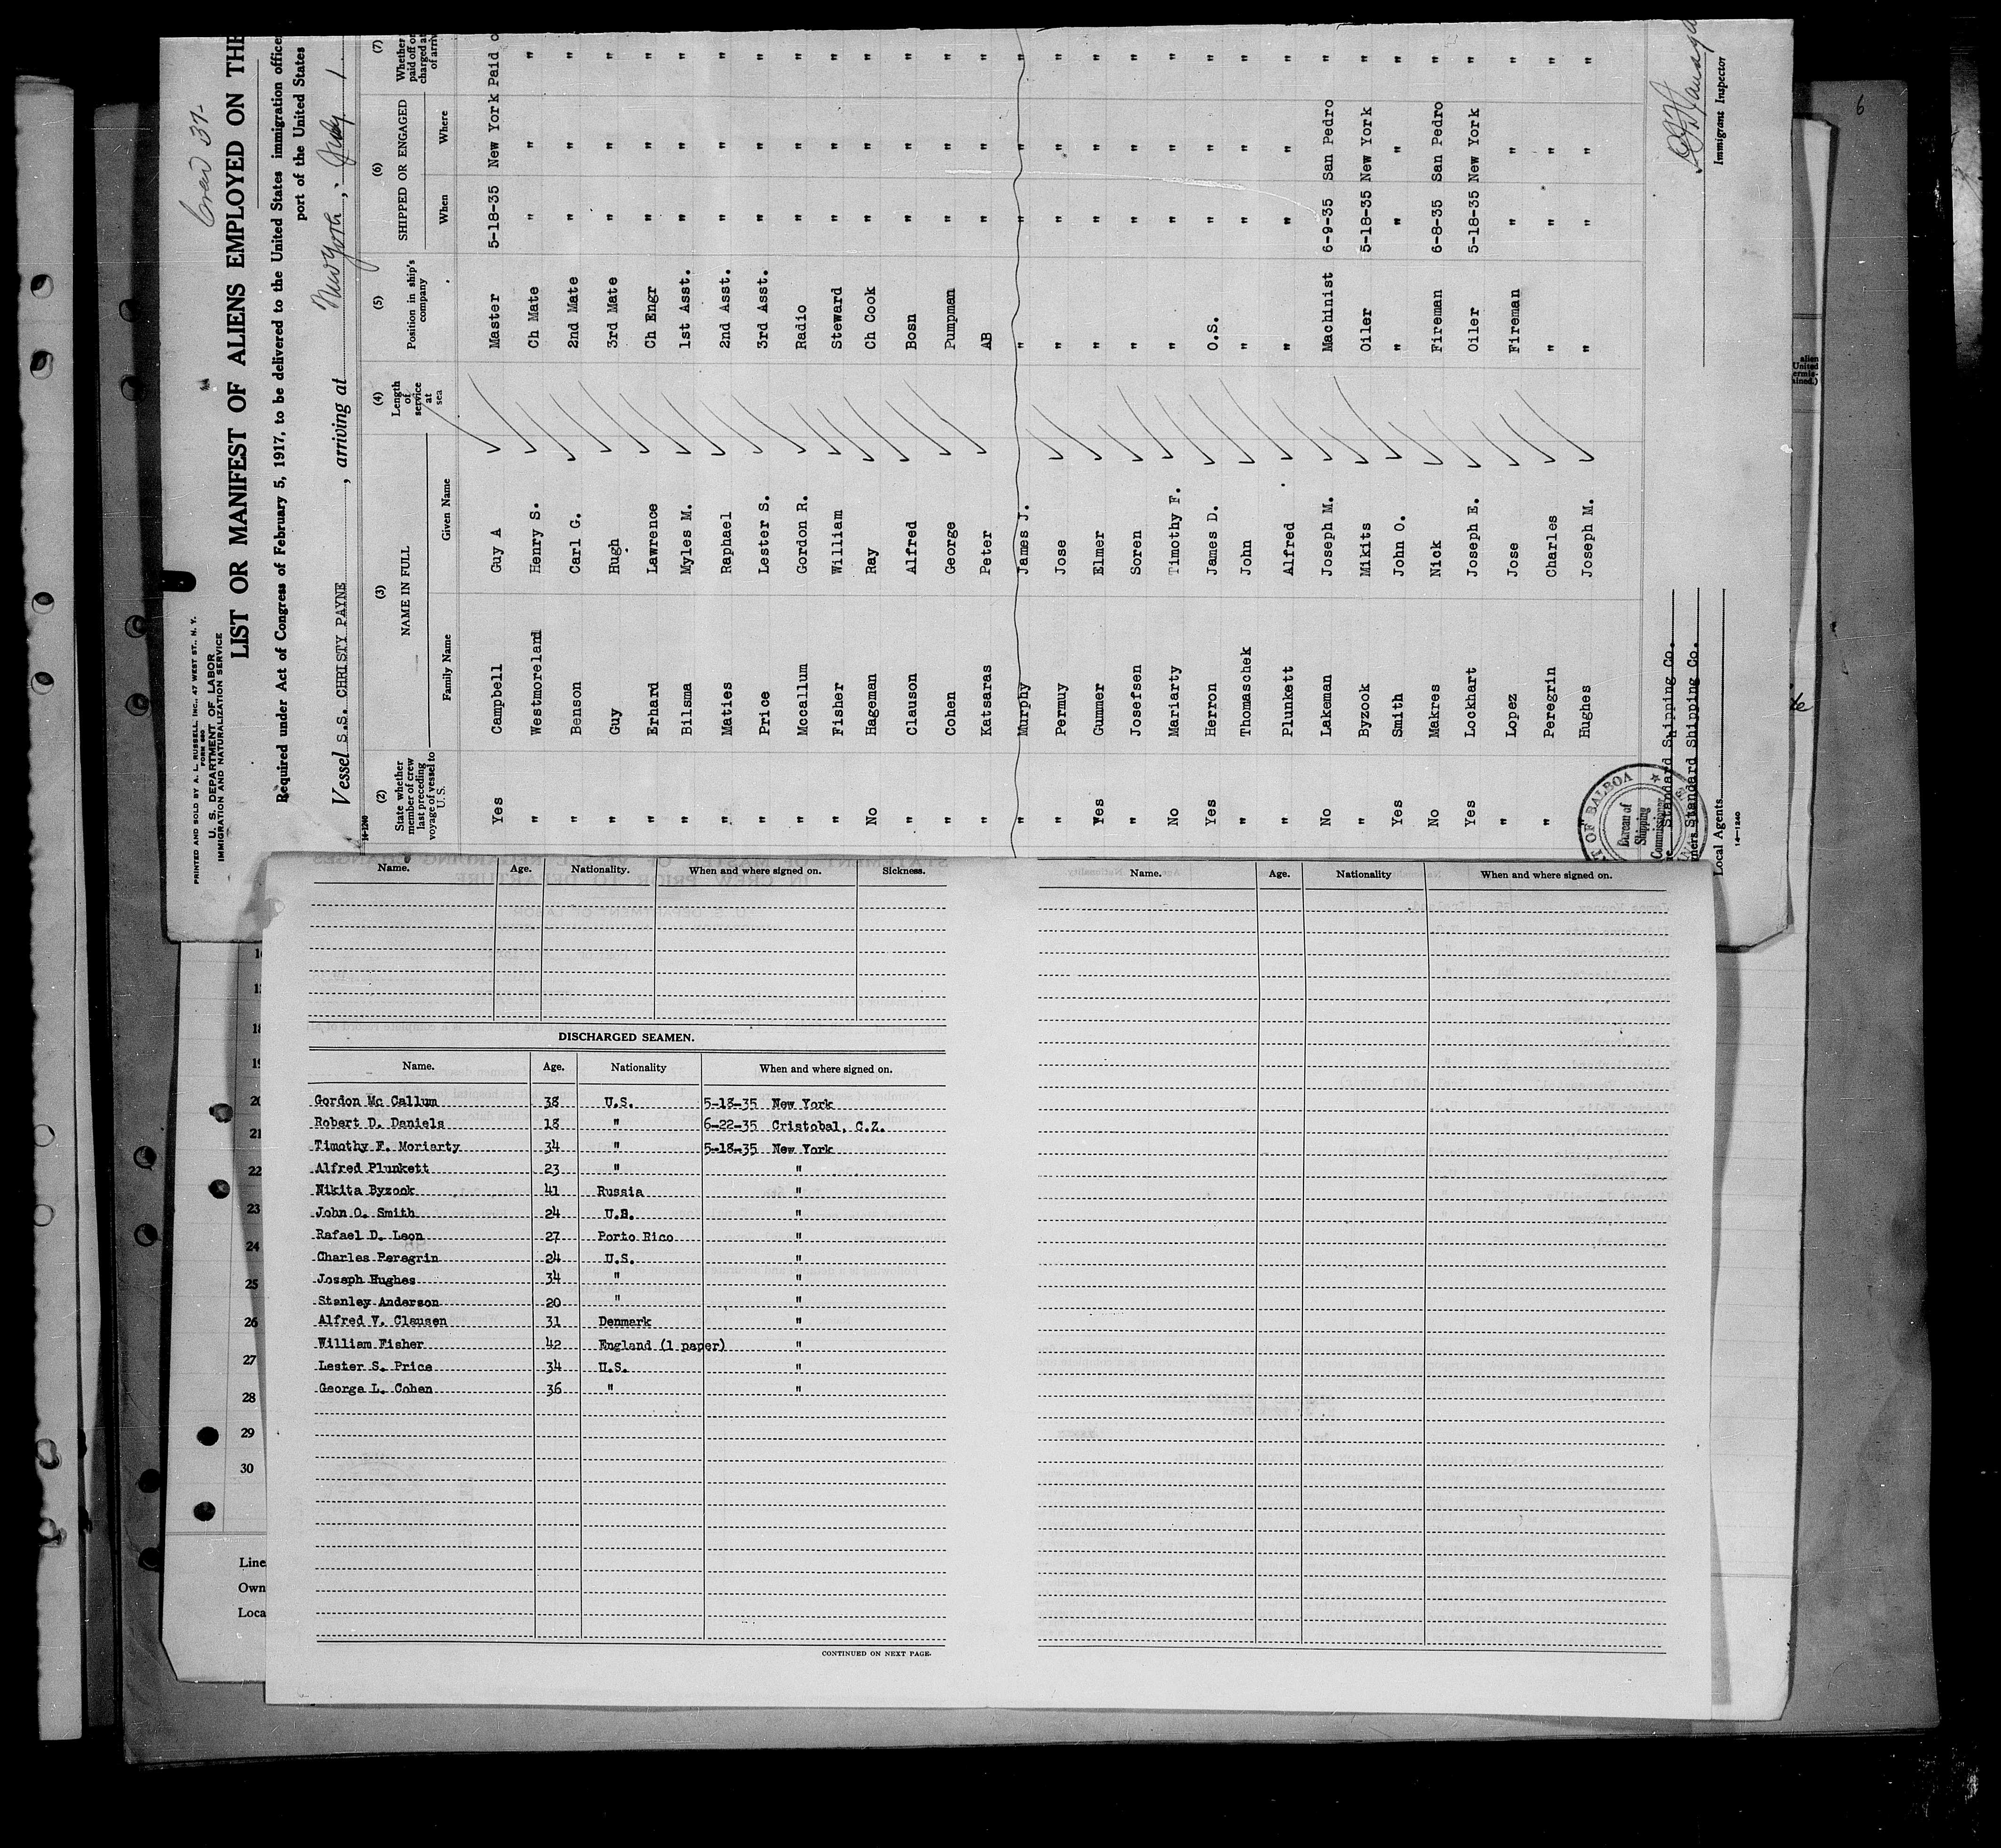 Crew 37
PRINTED AND SOLD BY A. L. RUSSELL, INC., 47 WEST ST., N. Y.
FORM 680
U. S. DEPARTMENT OF LABOR
IMMIGRATION AND NATURALIZATION SERVICE
LIST OR MANIFEST OF ALIENS EMPLOYED ON THE
Required under Act of Congress of February 5, 1917, to be delivered to the United States immigration office
port of the United States
Vessel S.S. CHRISTY PAYNE, arriving at New York, July 1
14-1240
(2) State whether member of crew last preceding voyage of vessel to U. S.
(3) NAME IN FULL
Family Name Given Name
(4) Length of service at sea
(5) Position in ship's company
(6) SHIPPED OR ENGAGED
When Where
(7) Whether paid off or charged at of arriv
Yes Campbell Guy A Master 5-18-35 New York Paid o
" Westmoreland Henry S. Ch Mate " " "
" Benson Carl G. 2nd Mate " " "
" Guy Hugh 3rd Mate " " "
" Erhard Lawrence Ch Engr " " "
" Bilsma Myles M. 1st Asst. " " "
" Maties Raphael 2nd Asst. " " "
" Price Lester S. 3rd Asst. " " "
" Mccallum Gordon R. Radio " " "
" Fisher William Steward " " "
No Hageman Ray Ch Cook " " "
" Clauson Alfred Bosn " " "
" Cohen George Pumpman " " "
" Katsaras Peter AB " " "
" Murphy James J. " " " "
" Permuy Jose " " " "
Yes Gummer Elmer " " " "
" Josefsen Soren " " " "
No Mariarty Timothy F. " " " "
Yes Herron James D. O.S. " " "
" Thomaschek John " " " "
" Plunkett Alfred " " " "
No Lakeman Joseph M. Machinist 6-9-35 San Pedro "
" Byzook Mikits Oiler 5-18-35 New York "
Yes Smith John O. " " " "
No Makres Nick Fireman 6-8-35 San Pedro "
Yes Lockhart Joseph E. Oiler 5-18-35 New York "
" Lopez Jose Fireman " " "
" Peregrin Charles " " " "
Hughes Joseph M. " " " "
Standard Shipping Co.
Standard Shipping Co.
Local Agents
14-1240
OF BALBOA
Bureau of
Shipping
Commissioner
Immigrant Inspector
6
alien
United
ermis-
ained.)
Name. Age. Nationality. When and where signed on. Sickness.
DISCHARGED SEAMEN.
Name. Age. Nationality When and where signed on.
Gordon Mc Callum 38 U.S. 5-18-35 New York
Robert D. Daniels 18 " 6-22-35 Cristobal, C.Z.
Timothy F. Moriarty 34 " 5-18-35 New York
Alfred Plunkett 23 " "
Nikita Byzook 41 Russia "
John O. Smith 24 U.S. "
Rafael D. Leon 27 Porto Rico "
Charles Peregrin 24 U.S. "
Joseph Hughes 34 " "
Stanley Anderson 20 " "
Alfred V. Clausen 31 Denmark "
William Fisher 42 England (1 paper) "
Lester S. Price 34 U.S. "
George L. Cohen 36 " "
CONTINUED ON NEXT PAGE.
Name. Age. Nationality When and where signed on.
20
21
22
23
24
25
26
27
28
29
30
Line
Own
Loca